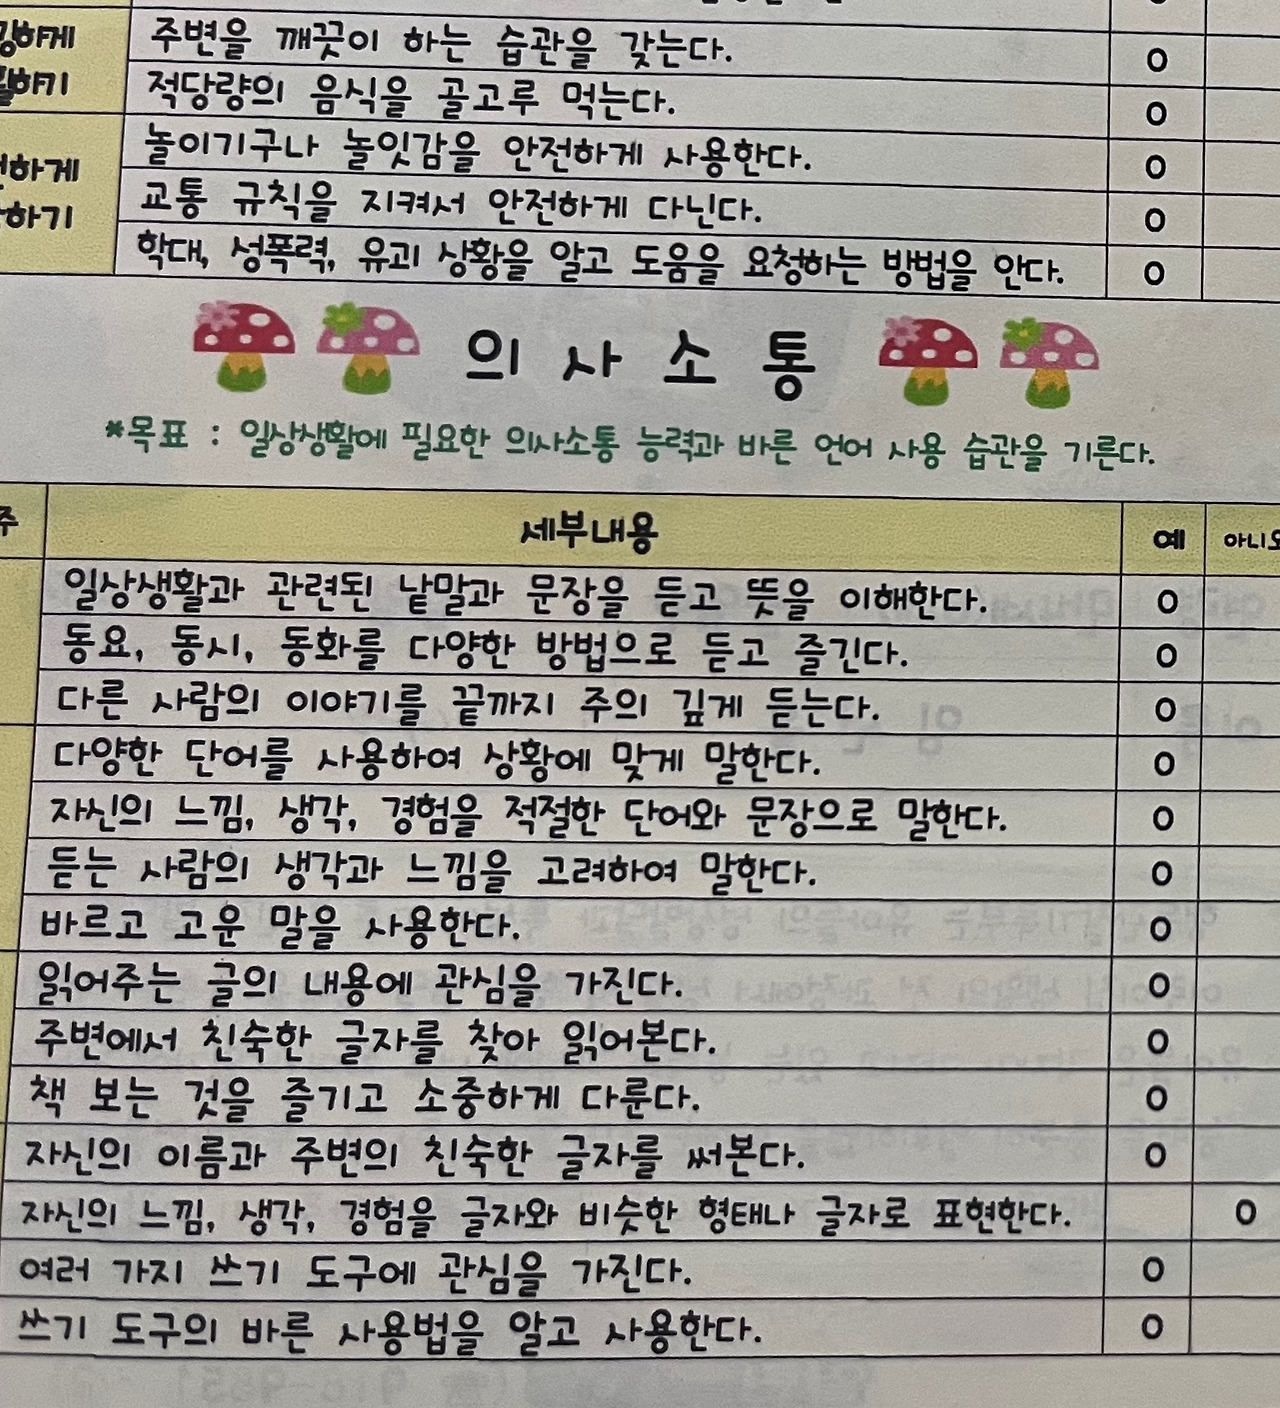 주변을 깨끗이 하는 습관을 갖는다. O
적당량의 음식을 골고루 먹는다. O
놀이기구나 놀잇감을 안전하게 사용한다. O
하게
교통 규칙을 지켜서 안전하게 다닌다. O
하기
학대, 성폭력, 유괴 상황을 알고 도움을 요청하는 방법을 안다. O
의사소통
*목표 : 일상생활에 필요한 의사소통 능력과 바른 언어 사용 습관을 기른다.
주 세부내용 예 아니오
일상생활과 관련된 낱말과 문장을 듣고 뜻을 이해한다. O
동요, 동시, 동화를 다양한 방법으로 듣고 즐긴다. O
다른 사람의 이야기를 끝까지 주의 깊게 듣는다. O
다양한 단어를 사용하여 상황에 맞게 말한다. O
자신의 느낌, 생각, 경험을 적절한 단어와 문장으로 말한다. O
듣는 사람의 생각과 느낌을 고려하여 말한다. O
바르고 고운 말을 사용한다. O
읽어주는 글의 내용에 관심을 가진다. O
주변에서 친숙한 글자를 찾아 읽어본다. O
책 보는 것을 즐기고 소중하게 다룬다. O
자신의 이름과 주변의 친숙한 글자를 써본다. O
자신의 느낌, 생각, 경험을 글자와 비슷한 형태나 글자로 표현한다. O
여러 가지 쓰기 도구에 관심을 가진다. O
쓰기 도구의 바른 사용법을 알고 사용한다. O